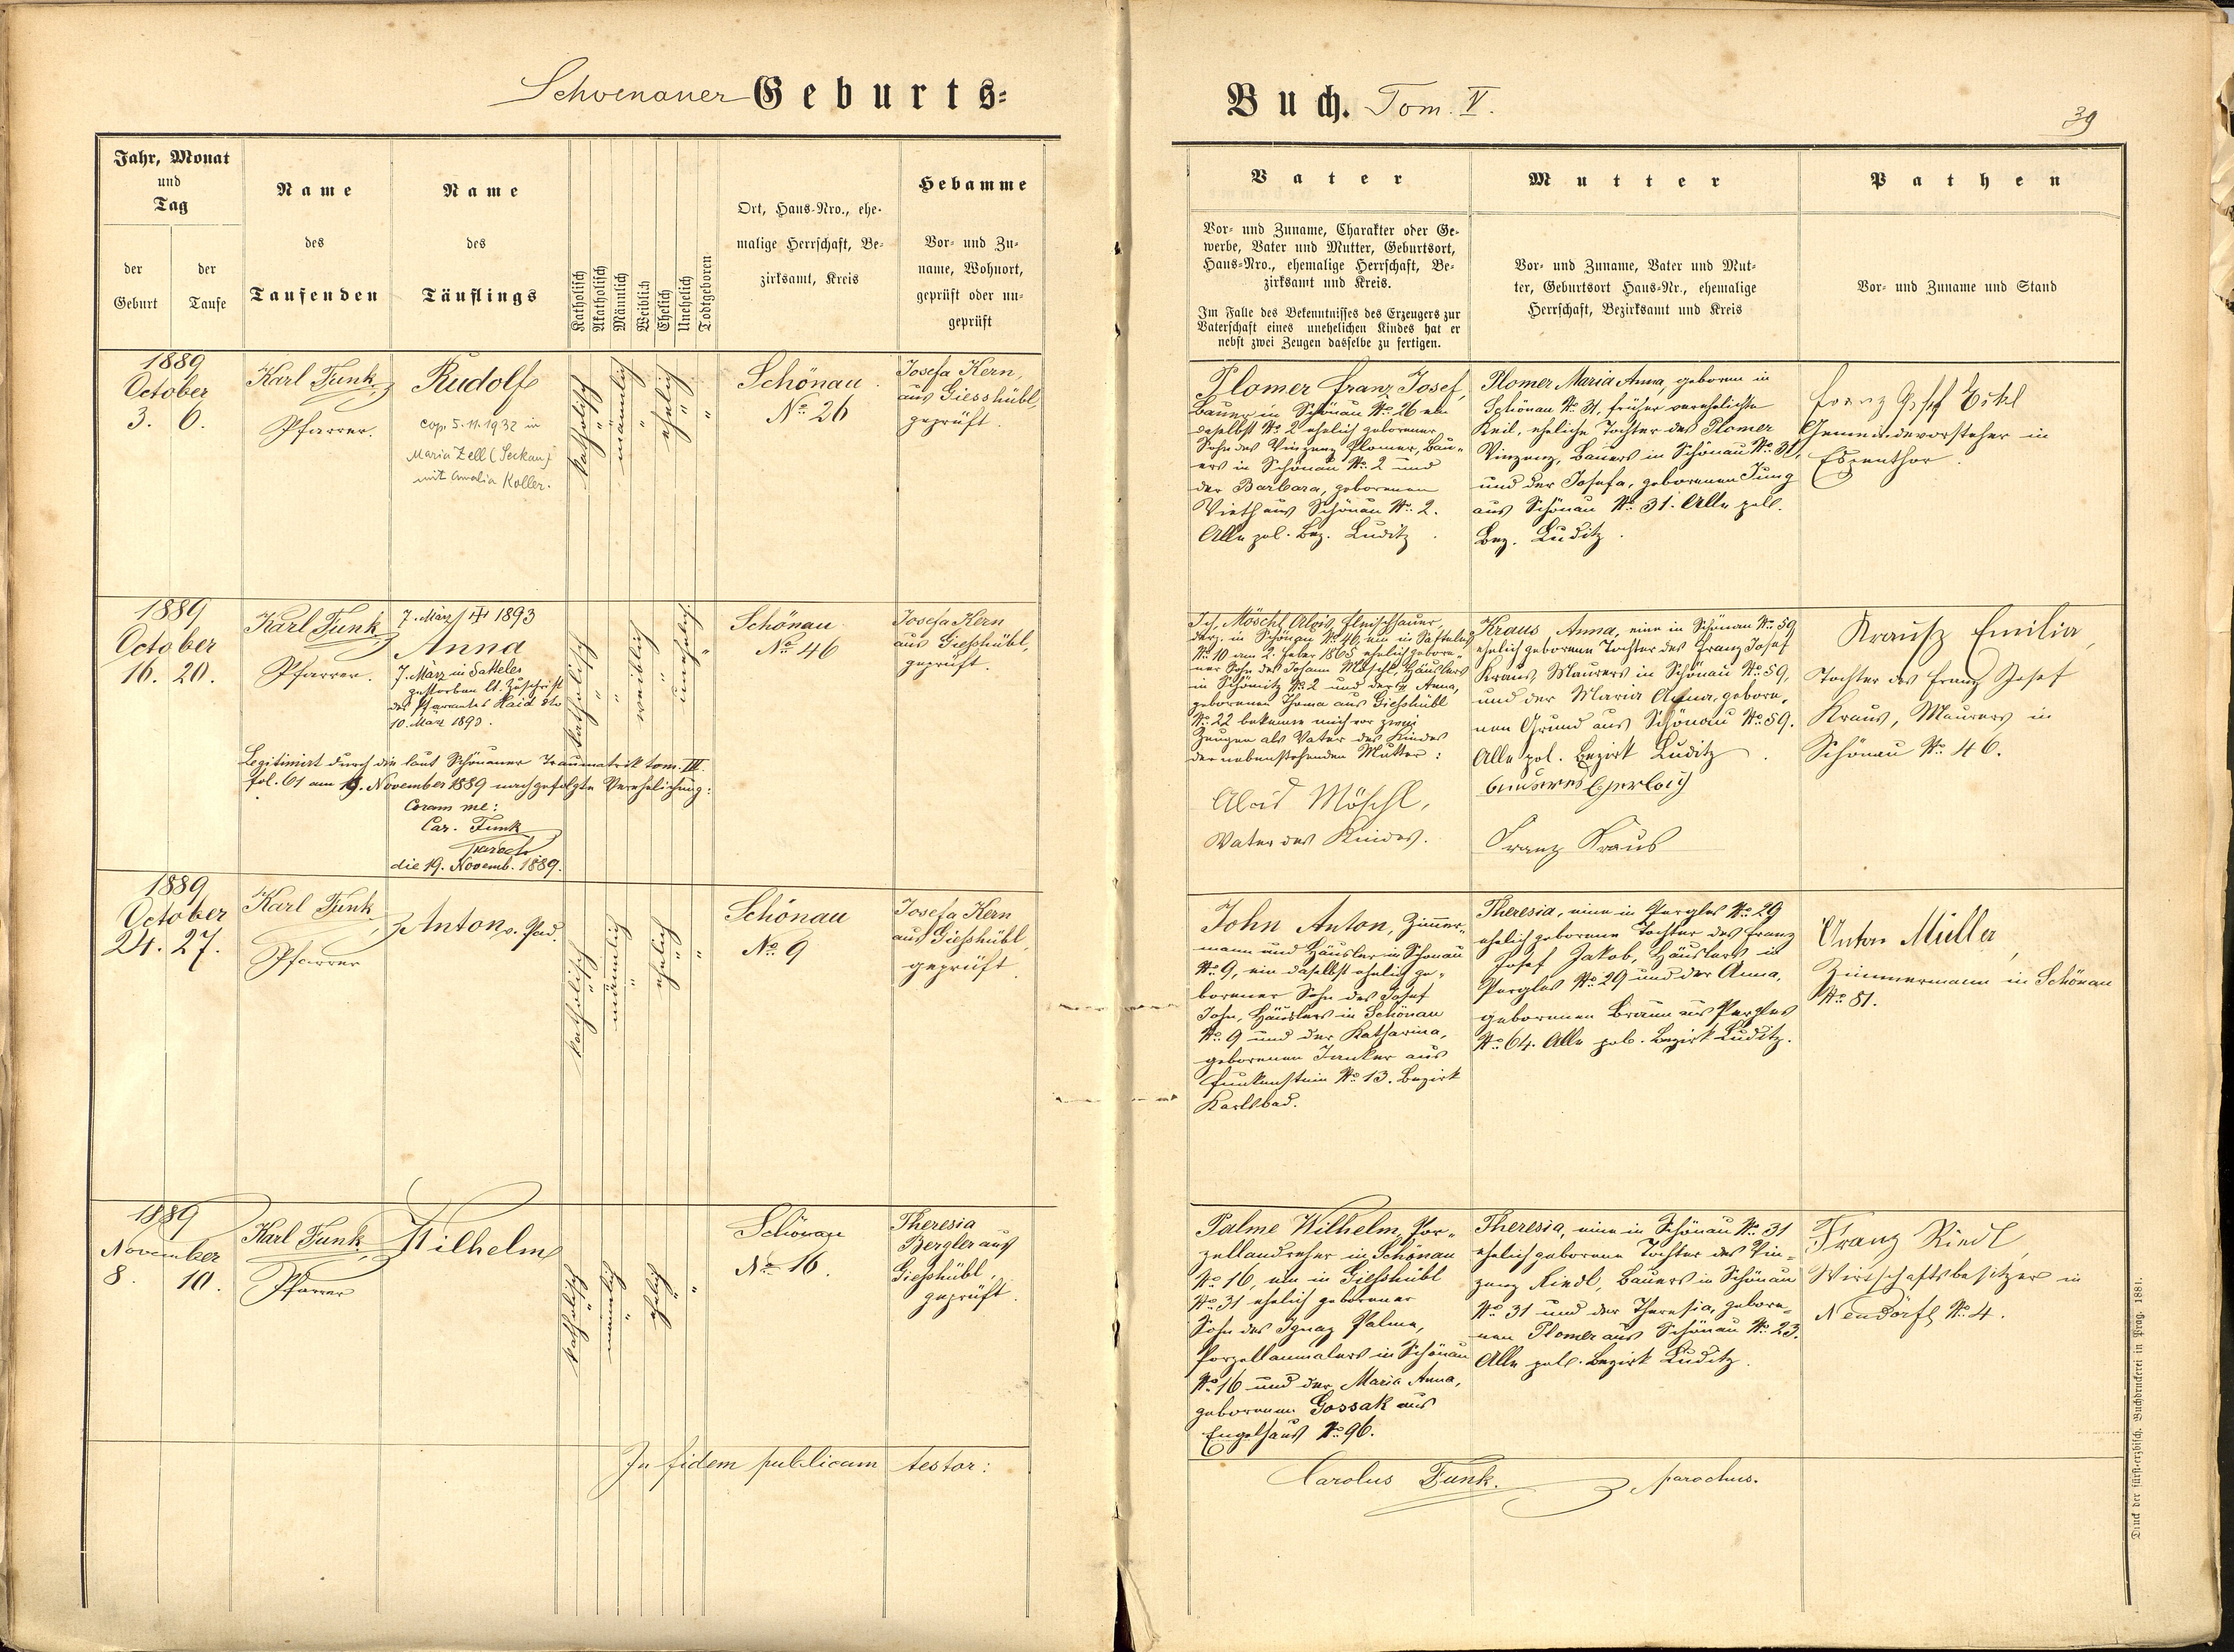 Schoenauer Geburts=
Buch. Tom. V.
39
Jahr, Monat
und
Tag
der
Geburt
der
Taufe
Name
des
Taufenden
Name
des
Täuflings
Katholisch
Akatholisch
Männlich
Weiblich
Ehelich
Unehelich
Todtgeboren
Ort, Haus-Nro., ehe-
malige Herrschaft, Be-
zirksamt, Kreis
Hebamme
Vor- und Zu-
name, Wohnort,
geprüft oder un-
geprüft
Vater
Vor- und Zuname, Charakter oder Ge-
werbe, Vater und Mutter, Geburtsort,
Haus-Nro., ehemalige Herrschaft, Be-
zirksamt und Kreis.
Im Falle des Bekenntnisses des Erzeugers zur
Vaterschaft eines unehelichen Kindes hat er
nebst zwei Zeugen dasselbe zu fertigen.
Mutter
Vor- und Zuname, Vater und Mut-
ter, Geburtsort Haus-Nr., ehemalige
Herrschaft, Bezirksamt und Kreis
Pathen
Vor- und Zuname und Stand
1889
October
3. 6.
Karl Funk,
Pfarrer.
Rudolf
cop. 5.11.1932 in
Maria Zell (Seckau)
mit Amalia Koller.
katholisch
"
männlich
"
ehelich
"
"
Schönau
No. 26
Josefa Kern,
aus Giesshübl,
geprüft.
Plomer Franz Josef,
Bauer in Schönau No. 26 ein
daselbst No. 2 ehelich geborener
Sohn des Vinzenz Plomer, Bau-
ers in Schönau No. 2 und
der Barbara, geborenen
Vieth aus Schönau No. 2.
Alle pol. Bez. Luditz.
Plomer Maria Anna, geboren in
Schönau No. 31, früher verehelichte
Keil, eheliche Tochter des Plomer
Vinzenz, Bauers in Schönau No. 31,
und der Josefa, geborenen Jung
aus Schönau No. 31. Alle pol.
Bez. Luditz.
Franz Josef
Gemeindevorsteher in
Espenthor.
1889
October
16. 20.
Karl Funk
Pfarrer.
7. März 1893
Anna
7. März in Satteles
gestorben lt. Zuschrift
des Pfarramtes Haid dto
10. März 1893.
katholisch
"
"
weiblich
"
unehelich
"
Schönau
No. 46
Josefa Kern
aus Gießhübl,
geprüft.
Legitimirt durch die laut Schönauer Traumatrik tom. III.
fol. 61 am 19. November 1889 nachgefolgte Verehelichung:
Coram me:
Car. Funk
Paroch
die 19. Novemb. 1889.
Ich, Möschl Alois, Fleischhauer,
derz. in Schönau No. 46, ein in Satteles
No. 10 am 2. 1865 ehelich gebore-
ner Sohn des Johann Möschl, Häuslers
in Schömitz No. 2 und der Anna,
geborenen Thoma aus Gießhübl
No. 22 bekenne mich vor zwei
Zeugen als Vater des Kindes
der nebenstehenden Mutter:
Alois Möschl,
Vater des Kindes.
Kraus Anna, eine in Schönau No. 59
ehelich geborene Tochter des Franz Josef
Kraus, Maurers in Schönau No. 59,
und der Maria Anna, gebore-
nen Grund aus Schönau No. 59.
Alle pol. Bezirk Luditz.
Gerlach
Franz Kraus
Krausz Emilia,
Tochter des Franz Josef
Kraus, Maurers in
Schönau No. 46.
1889
October
24. 27.
Karl Funk
Pfarrer
Anton v. Pad.
katholisch
"
männlich
"
ehelich
"
"
Schönau
No. 9
Josefa Kern
aus Gießhübl
geprüft.
John Anton, Zimmer-
mann und Häusler in Schönau
No. 9, ein daselbst ehelich ge-
borener Sohn des Josef
John, Häuslers in Schönau
No. 9 und der Katharina,
geborenen Junker aus
Funkenstein No. 13. Bezirk
Karlsbad.
Theresia, eine in Pergles No. 29
ehelich geborene Tochter des Franz
Josef Jakob, Häuslers in
Pergles No. 29 und der Anna,
geborenen Braun aus Pergles
No. 64. Alle pol. Bezirk Luditz.
Anton Müller,
Zimmermann in Schönau
No. 81.
1889
November
8. 10.
Karl Funk
Pfarrer
Wilhelm
katholisch
"
männlich
"
ehelich
"
"
Schönau
No. 16.
Theresia
Bergler aus
Gießhübl,
geprüft.
Palme Wilhelm, Por-
zellandreher in Schönau
No. 16, ein in Gießhübl
No. 31 ehelich geborener
Sohn des Ignaz Palme,
Porzellanmalers in Schönau
No. 16 und der Maria Anna,
geborenen Gossak aus
Engelhaus No. 96.
Theresia, eine in Schönau No. 31
ehelich geborene Tochter des Vin-
zenz Riedl, Bauers in Schönau
No. 31 und der Theresia, gebore-
nen Plomer aus Schönau No. 23.
Alle pol. Bezirk Luditz.
Franz Riedl,
Wirtschaftsbesitzer in
Neudörfl No. 4.
In fidem publicam testor:
Carolus Funk. parochus.
Druck der fürst-erzbisch. Buchdruckerei in Prag. 1881.